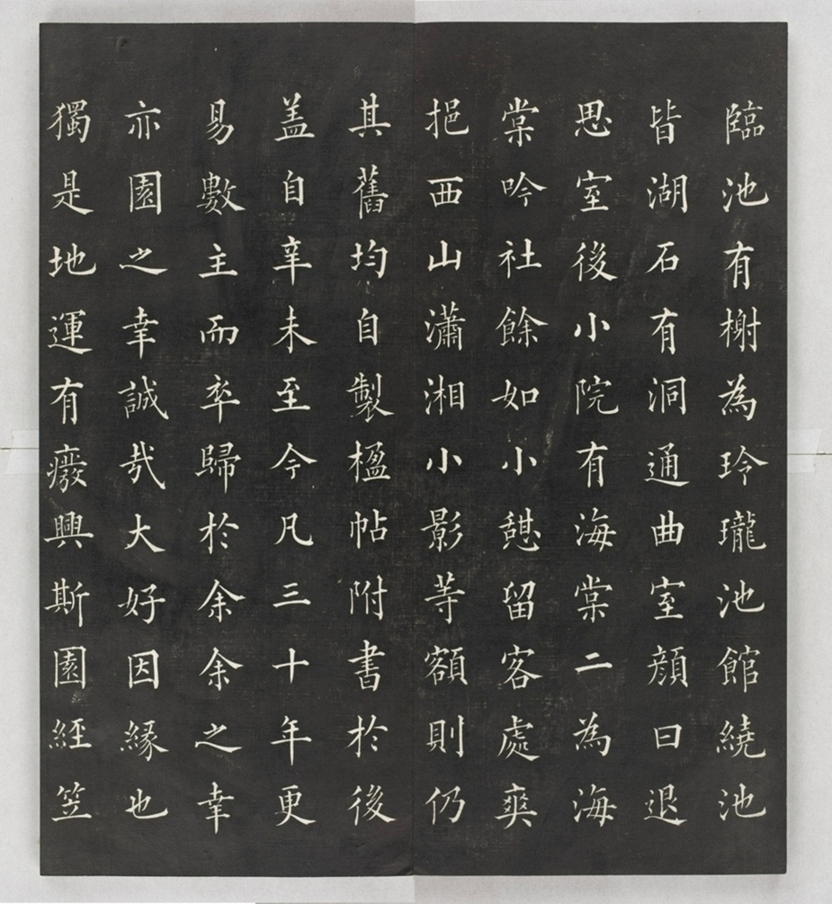 臨池有榭為玲瓏池館繞池
皆湖石有洞通曲室顔曰退
思室後小院有海棠二為海
棠吟社餘如小憇留客處爽
挹西山瀟湘小影等額則仍
其舊均自製楹帖附書於後
盖自辛未至今凡三十年更
易數主而卒歸於余余之幸
亦園之幸誠㢤大好因緣也
獨是地運有癈興斯園經笠